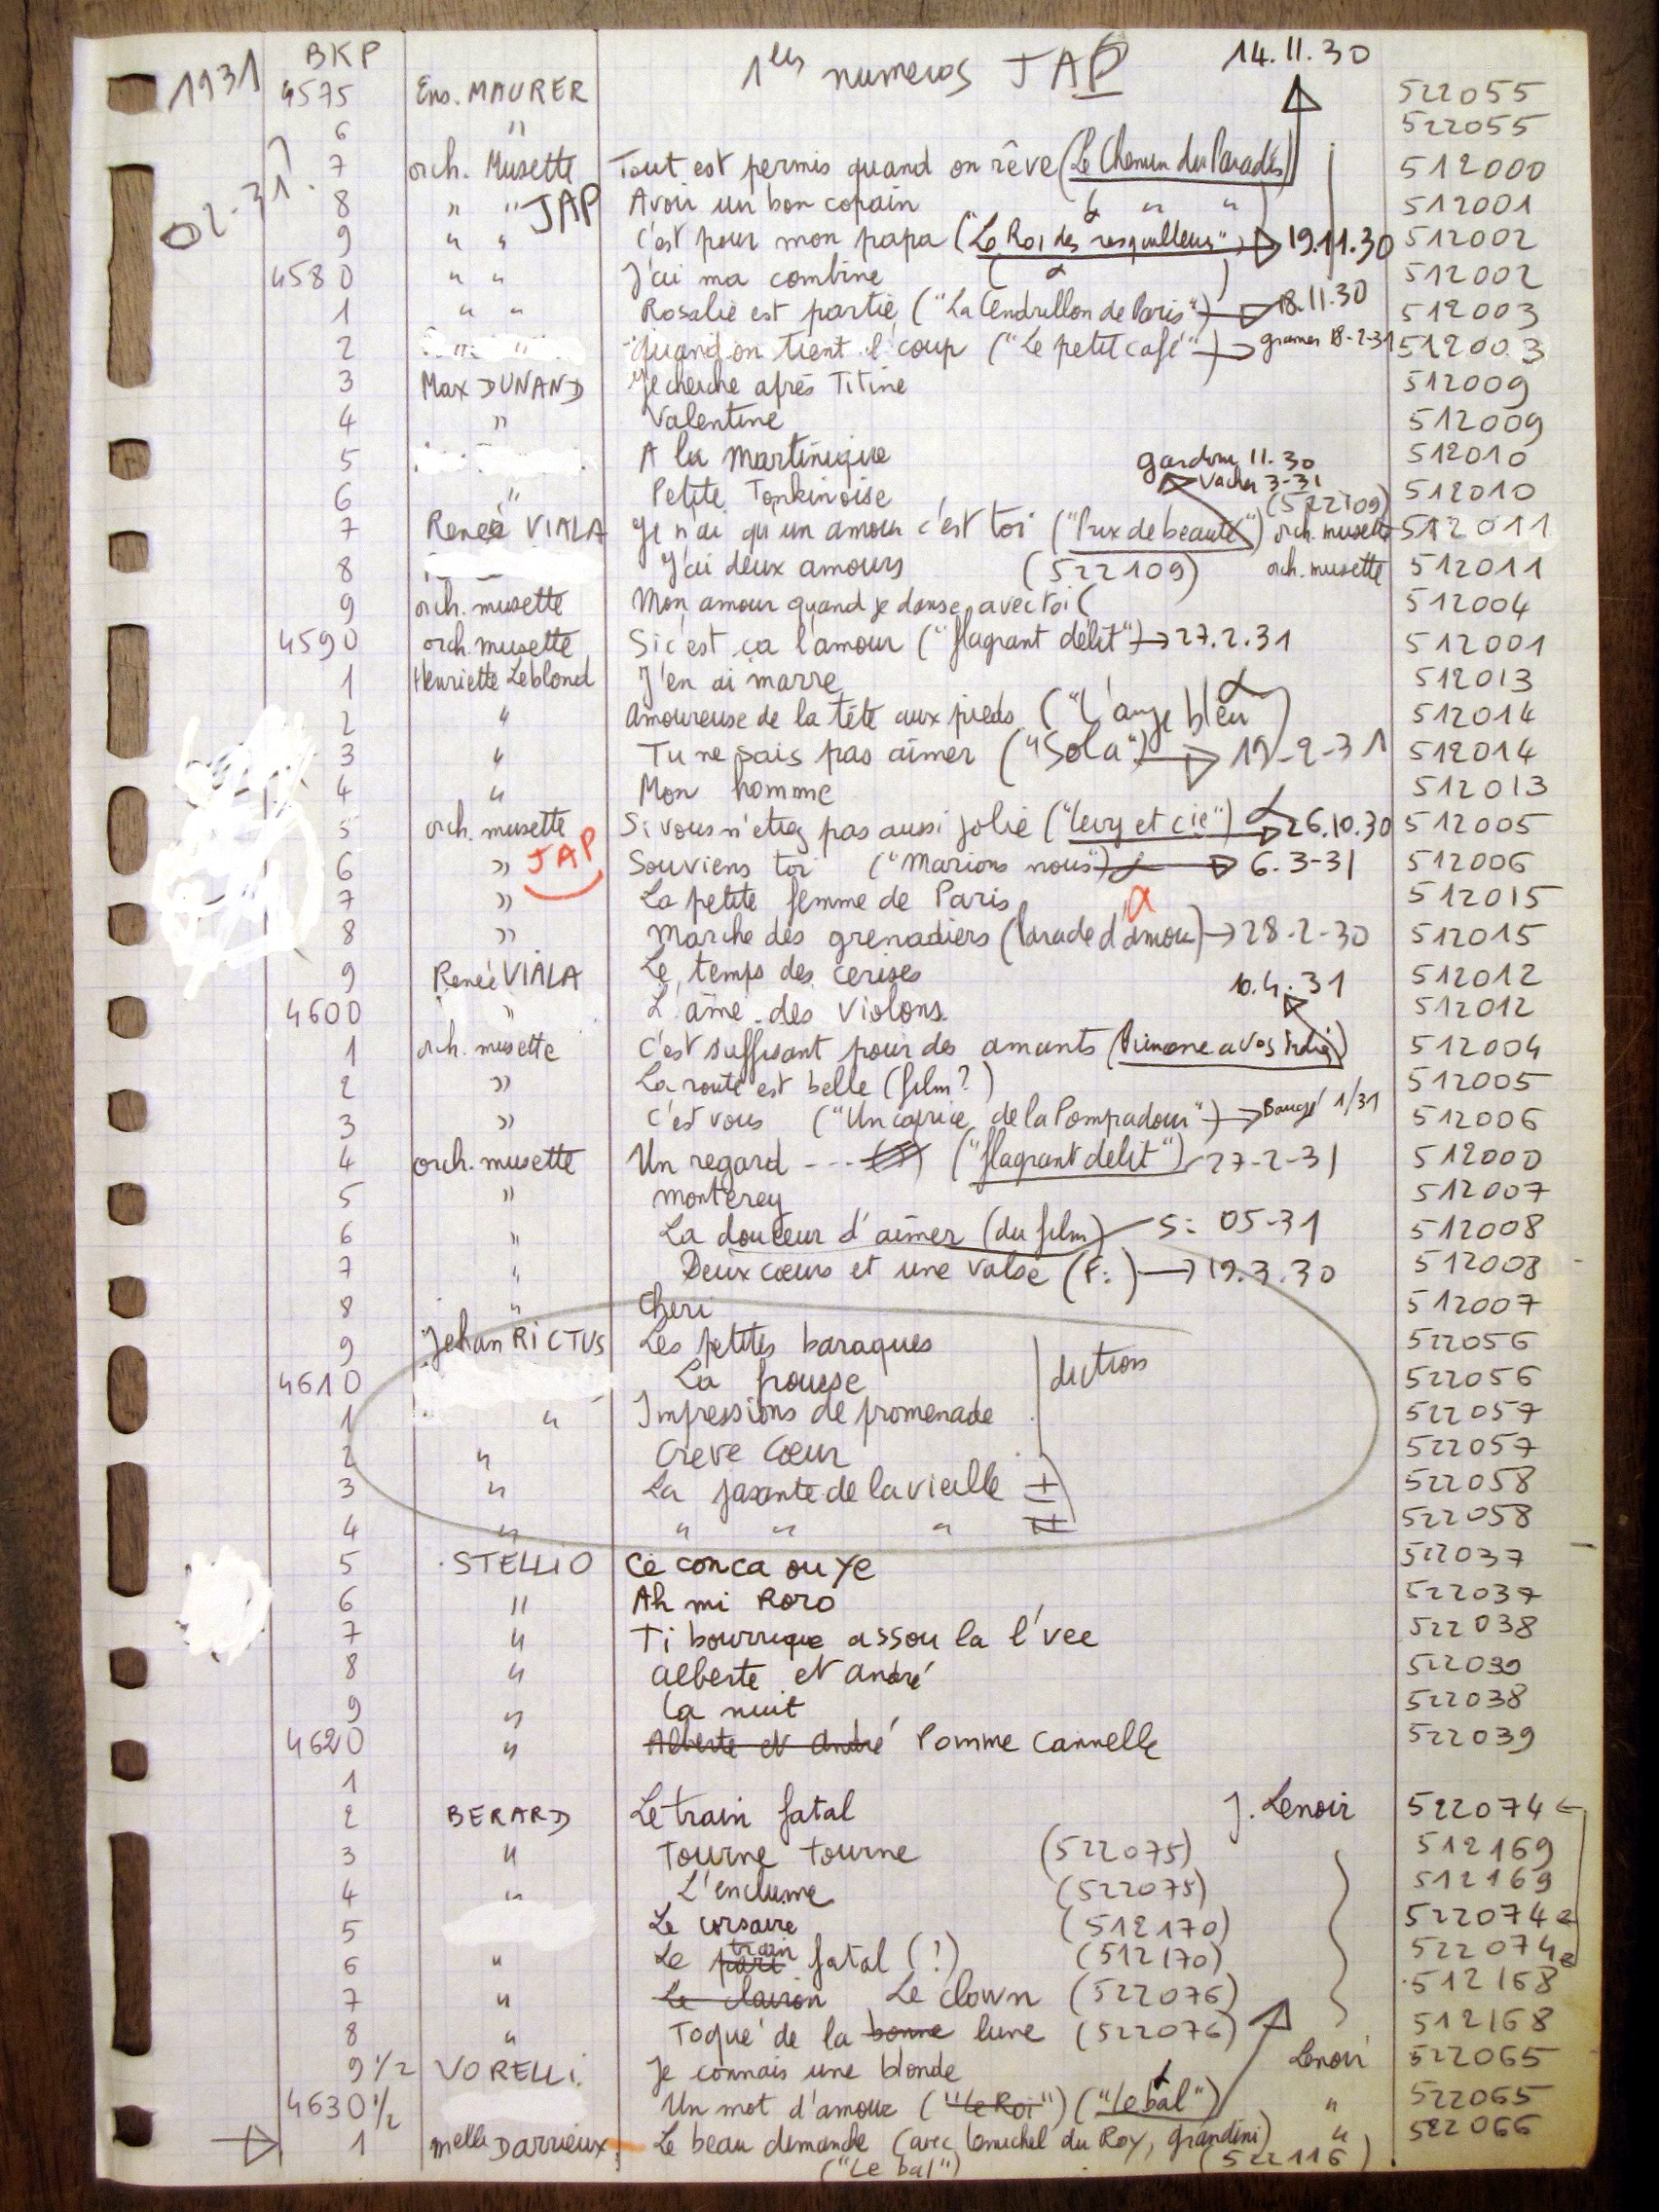 1931 BKP 1ers numeros JAP 14.11.30
4575 Ens. MAURER 522055
6 " 522055
7 orch. Musette Tout est permis quand on rêve (Le Chemin du Paradis) 512000
02-31. ?
8 " " JAP Avoir un bon copain " " 512001
9 " " C'est pour mon papa ("Le Roi des resquilleurs") → 19.11.30 512002
4580 " " J'ai ma combine ( ) 512002
1 " " Rosalie est partie ("La Cendrillon de Paris") → 18.11.30 512003
2 " " quand on tient l' coup ("Le petit café") → 18-2-31 512003
3 Max DUNAND Je cherche après Titine 512009
4 " Valentine 512009
5 A la Martinique 512010
gardoni 11.30
Vacher 3-31
6 " Petite Tonkinoise (522109) 512010
7 Renée VIALA Je n'ai qu'un amour c'est toi ("Prix de beauté") orch. musette 512011
8 J'ai deux amours (522109) orch. musette 512011
9 orch. musette Mon amour quand je danse avec toi ( 512004
4590 orch. musette Si c'est ça l'amour ("flagrant délit") → 27.2.31 512001
1 Henriette Leblond J'en ai marre 512013
2 " Amoureuse de la tête aux pieds ("L'ange bleu ) 512014
3 " Tu ne sais pas aimer ("Sola") → 19-2-31 512014
4 " Mon homme 512013
5 orch. musette Si vous n'etiez pas aussi jolie ("Levy et cie") → 26.10.30 512005
6 " JAP Souviens toi ("Marions nous") → 6.3-31 512006
7 " La petite femme de Paris 512015
8 " Marche des grenadiers (Parade d'amour) → 28-2-30 512015
9 Renée VIALA Le temps des cerises 512012
10.4.31
4600 " L'âme des violons 512012
1 orch. musette C'est suffisant pour des amants 512004
2 " La route est belle (film?) 512005
3 " C'est vous ("Un caprice de la Pompadour") → Baugé 1/31 512006
4 orch. musette Un regard --- ("flagrant delit") 27-2-31 512000
5 " Monterey 512007
6 " La douceur d'aimer (du film) S: 05-31 512008
7 " Deux cœurs et une valse (F:) → 19.3.30 512008
8 " Cheri 512007
9 Jehan RICTUS Les petites baraques 522056
4610 La frousse dictions 522056
1 " Impressions de promenade 522057
2 " Creve Cœur 522057
3 " La jasante de la vieille I 522058
4 " " " " II 522058
5 STELLIO Ce conca ou ye 522037
6 " Ah mi Roro 522037
7 " Ti bourrique assou la l'vee 522038
8 " Alberte et André 522039
9 " La nuit 522038
4620 " Alberte et André Pomme Cannelle 522039
1
2 BERARD Le train fatal J. Lenoir 522074 ←
3 " Tourne tourne (522075) 512169
4 " L'enclume (522075) 512169
5 Le corsaire (512170) 522074 ←
6 " Le pari train fatal (!) (512170) 522074 ←
7 " Le clairon Le clown (522076) 512168
8 " Toqué de la bonne lune (522076) 512168
9 1/2 VORELLI. Je connais une blonde Lenoir 522065
4630 1/2 Un mot d'amour ("Le Roi") ("Le bal") " 522065
→ 1 Melle Darrieux Le beau dimanche (avec Lemichel du Roy, Grandini) " 522066
("Le bal") (522116)